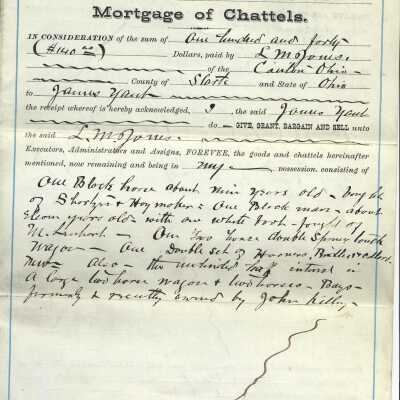 Mortgage of Chattels.
IN CONSIDERATION of the sum of One hundred and forty
($140 00) Dollars, paid by L M Jones,
of the Canton Ohio
County of Stark and State of Ohio
to James Yant
the receipt whereof is hereby acknowledged, I the said James Yant
do GIVE, GRANT, BARGAIN AND SELL unto
the said L M Jones
Executors, Administrators and Assigns, FOREVER, the goods and chattels hereinafter
mentioned, now remaining and being in my possession, consisting of
One Black horse about nine years old - bought
of & Haymaker & One Black mare - about
years old - with one white foot - bought of
M. - One two horse double Spring truck
Wagon - One double set of Harness, Bridles & collars
New - also - the undivided half interest in
a large two horse wagon & two horses - Bays -
formerly & recently owned by John